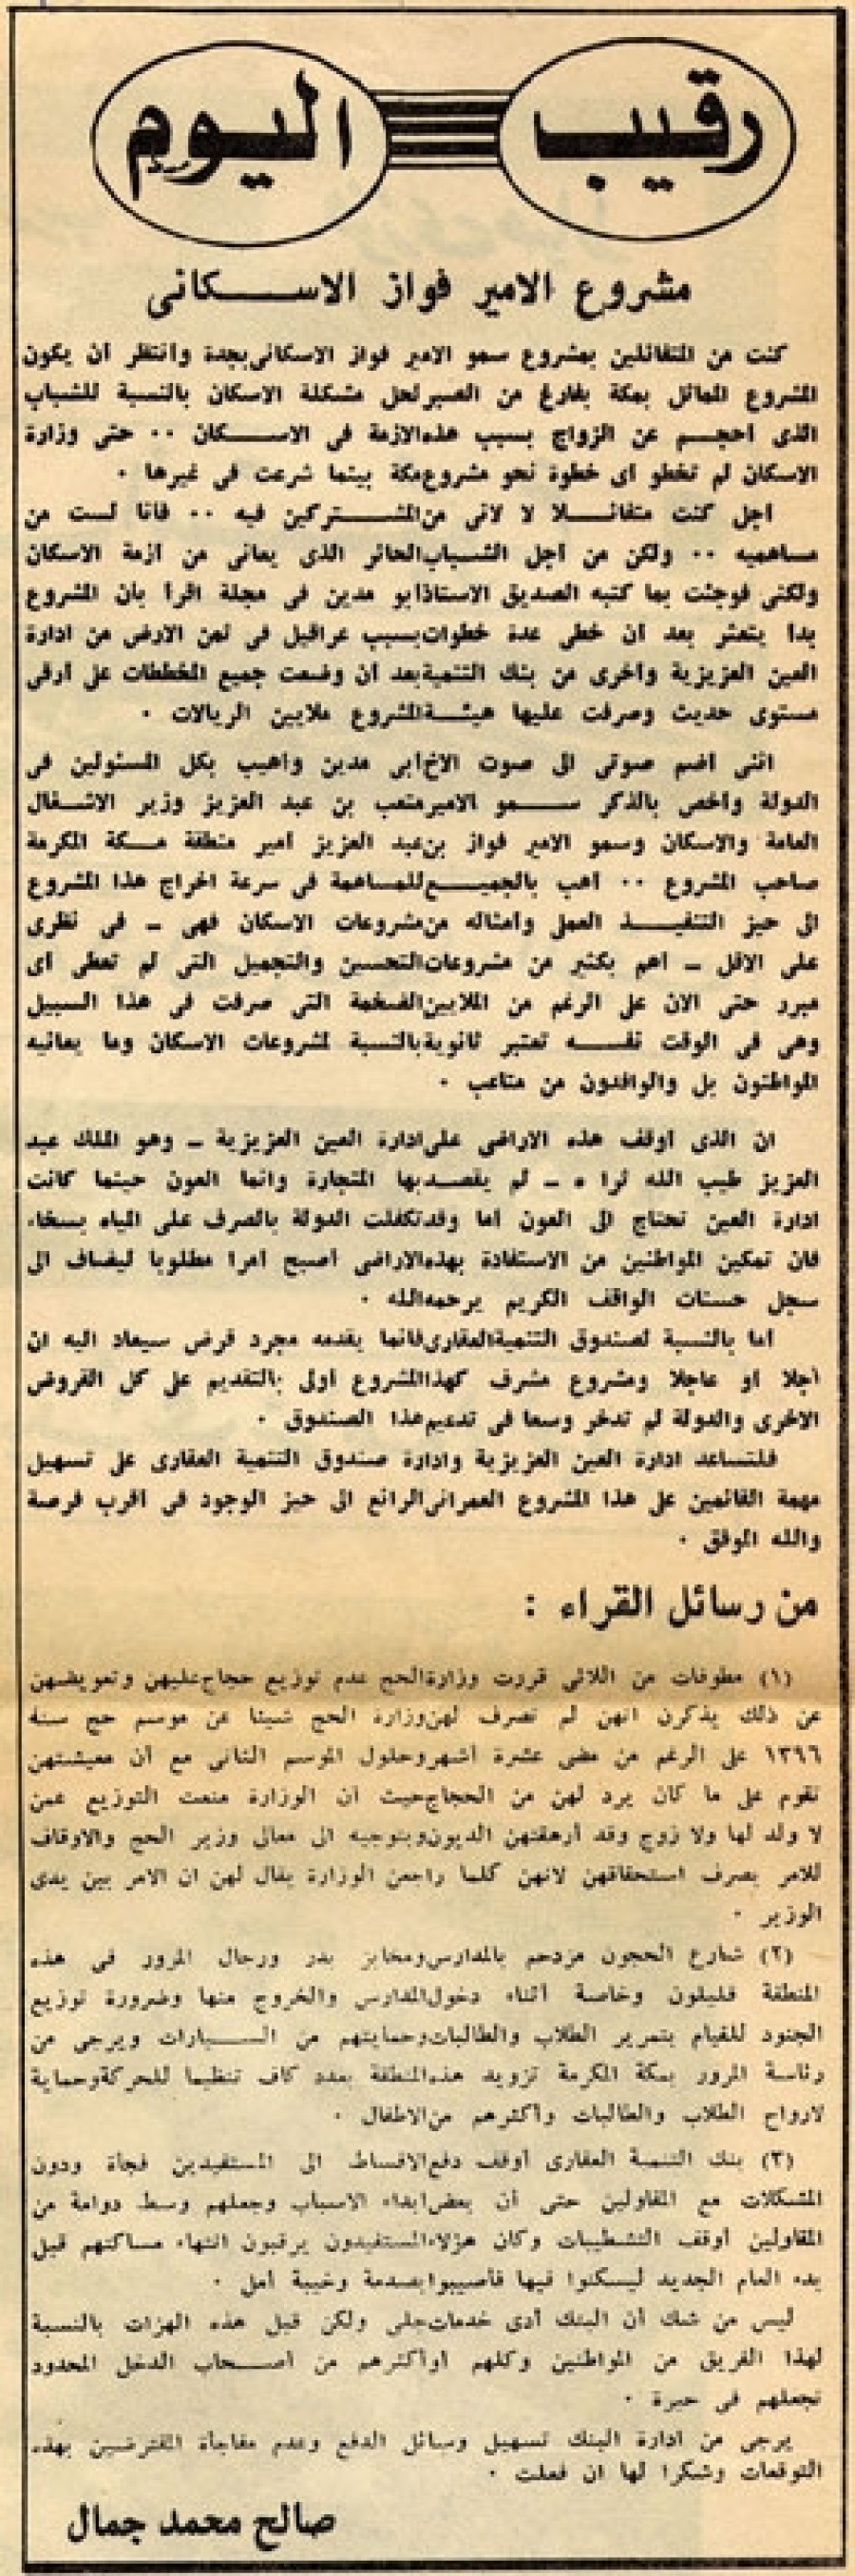 رقيب اليوم
مشروع الامير فواز الاسكانى
كنت من المتفائلين بمشروع سمو الامير فواز الاسكانى بجدة وانتظر أن يكون
المشروع الماثل بمكة بفارغ من الصبر لحل مشكلة الاسكان بالنسبة للشباب
الذى أحجم عن الزواج بسبب هذه الازمة فى الاسكان ٠٠ حتى وزارة
الاسكان لم تخطو اى خطوة نحو مشروع مكة بينما شرعت فى غيرها ٠
اجل كنت متفائلا لا لانى من المشتركين فيه ٠٠ فأنا لست من
مساهميه ٠٠ ولكن من أجل الشباب الحائر الذى يعانى من أزمة الاسكان
ولكنى فوجئت بما كتبه الصديق الاستاذ ابو مدين فى مجلة اقرأ بأن المشروع
بدأ يتعثر بعد أن خطى عدة خطوات بسبب عراقيل فى ثمن الارض من ادارة
العين العزيزية وأخرى من بنك التنمية بعد أن وضعت جميع المخططات على أرقى
مستوى حديث وصرفت عليها هيئة المشروع ملايين الريالات ٠
اننى أضم صوتى الى صوت الاخ أبى مدين وأهيب بكل المسئولين فى
الدولة وأخص بالذكر سمو الامير متعب بن عبد العزيز وزير الاشغال
العامة والاسكان وسمو الامير فواز بن عبد العزيز أمير منطقة مكة المكرمة
صاحب المشروع ٠٠ أهب بالجميع للمساهمة فى سرعة اخراج هذا المشروع
الى حيز التنفيذ العملى وأمثاله من مشروعات الاسكان فهى ـ فى نظرى
على الاقل ـ أهم بكثير من مشروعات التحسين والتجميل التى لم تعطى أى
مبرر حتى الان على الرغم من الملايين الضخمة التى صرفت فى هذا السبيل
وهى فى الوقت نفسه تعتبر ثانوية بالنسبة لمشروعات الاسكان وما يعانيه
المواطنون بل والوافدون من متاعب ٠
ان الذى أوقف هذه الاراضى على ادارة العين العزيزية ـ وهو الملك عبد
العزيز طيب الله ثراه ـ لم يقصد بها المتجارة وانما العون حينما كانت
ادارة العين تحتاج الى العون أما وقد تكفلت الدولة بالصرف على المياه بسخاء
فان تمكين المواطنين من الاستفادة بهذه الاراضى أصبح أمرا مطلوبا ليضاف الى
سجل حسنات الواقف الكريم يرحمه الله ٠
أما بالنسبة لصندوق التنمية العقارى فانما يقدمه مجرد قرض سيعاد اليه ان
آجلا أو عاجلا ومشروع مشرف كهذا المشروع أولى بالتقديم على كل القروض
الاخرى والدولة لم تدخر وسعا فى تدعيم هذا الصندوق ٠
فلتساعد ادارة العين العزيزية وادارة صندوق التنمية العقارى على تسهيل
مهمة القائمين على هذا المشروع العمرانى الرائع الى حيز الوجود فى أقرب فرصة
والله الموفق ٠
من رسائل القراء :
(١) مطوفات من اللائى قررت وزارة الحج عدم توزيع حجاج عليهن وتعويضهن
عن ذلك يذكرن أنهن لم تصرف لهن وزارة الحج شيئا عن موسم حج سنة
١٣٩٦ على الرغم من مضى عشرة أشهر وحلول الموسم الثانى مع أن معيشتهن
تقوم على ما كان يرد لهن من الحجاج حيث أن الوزارة منعت التوزيع عمن
لا ولد لها ولا زوج وقد أرهقتهن الديون وبتوجيه الى معالى وزير الحج والاوقاف
للامر بصرف استحقاقهن لانهن كلما راجعن الوزارة يقال لهن ان الامر بين يدى
الوزير ٠
(٢) شارع الحجون مزدحم بالمدارس ومخابز بدر ورجال المرور فى هذه
المنطقة قليلون وخاصة أثناء دخول المدارس والخروج منها وضرورة توزيع
الجنود للقيام بتمرير الطلاب والطالبات وحمايتهم من السيارات ويرجى من
رئاسة المرور بمكة المكرمة تزويد هذه المنطقة بعدد كاف تنظيما للحركة وحماية
لارواح الطلاب والطالبات وأكثرهم من الاطفال ٠
(٣) بنك التنمية العقارى أوقف دفع الاقساط الى المستفيدين فجأة ودون
المشكلات مع المقاولين حتى أن بعض ابداء الاسباب وجعلهم وسط دوامة من
المقاولين أوقف التشطيبات وكان هؤلاء المستفيدون يرقبون انتهاء مساكنهم قبل
بدء العام الجديد ليسكنوا فيها فأصيبوا بصدمة وخيبة أمل ٠
ليس من شك أن البنك أدى خدمات جلى ولكن قبل هذه الهزات بالنسبة
لهذا الفريق من المواطنين وكلهم أو أكثرهم من أصحاب الدخل المحدود
تجعلهم فى حيرة ٠
يرجى من ادارة البنك تسهيل وسائل الدفع وعدم مفاجأة المقترضين بهذه
التوقعات وشكرا لها ان فعلت ٠
صالح محمد جمال